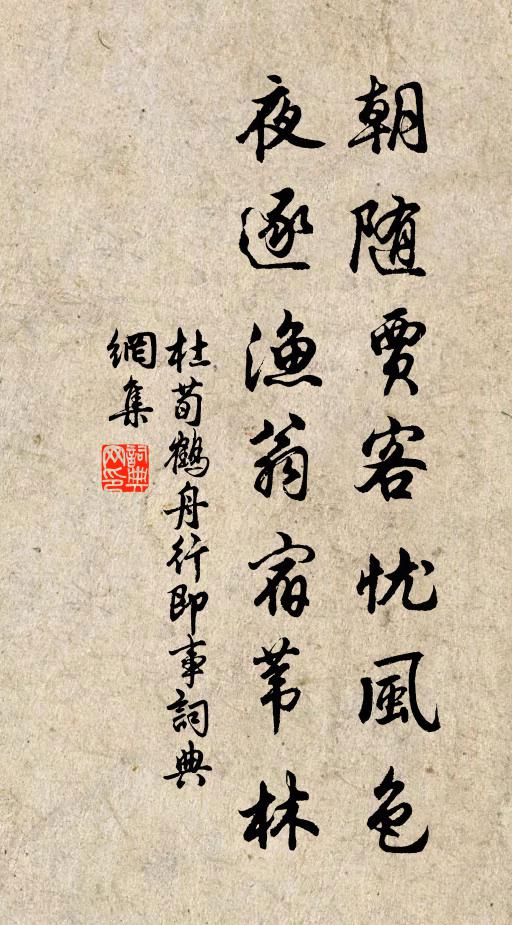 朝随賈客忧風色
夜逐漁翁宿苇林
杜荀鶴舟行即事詞典
網集
詞典網印